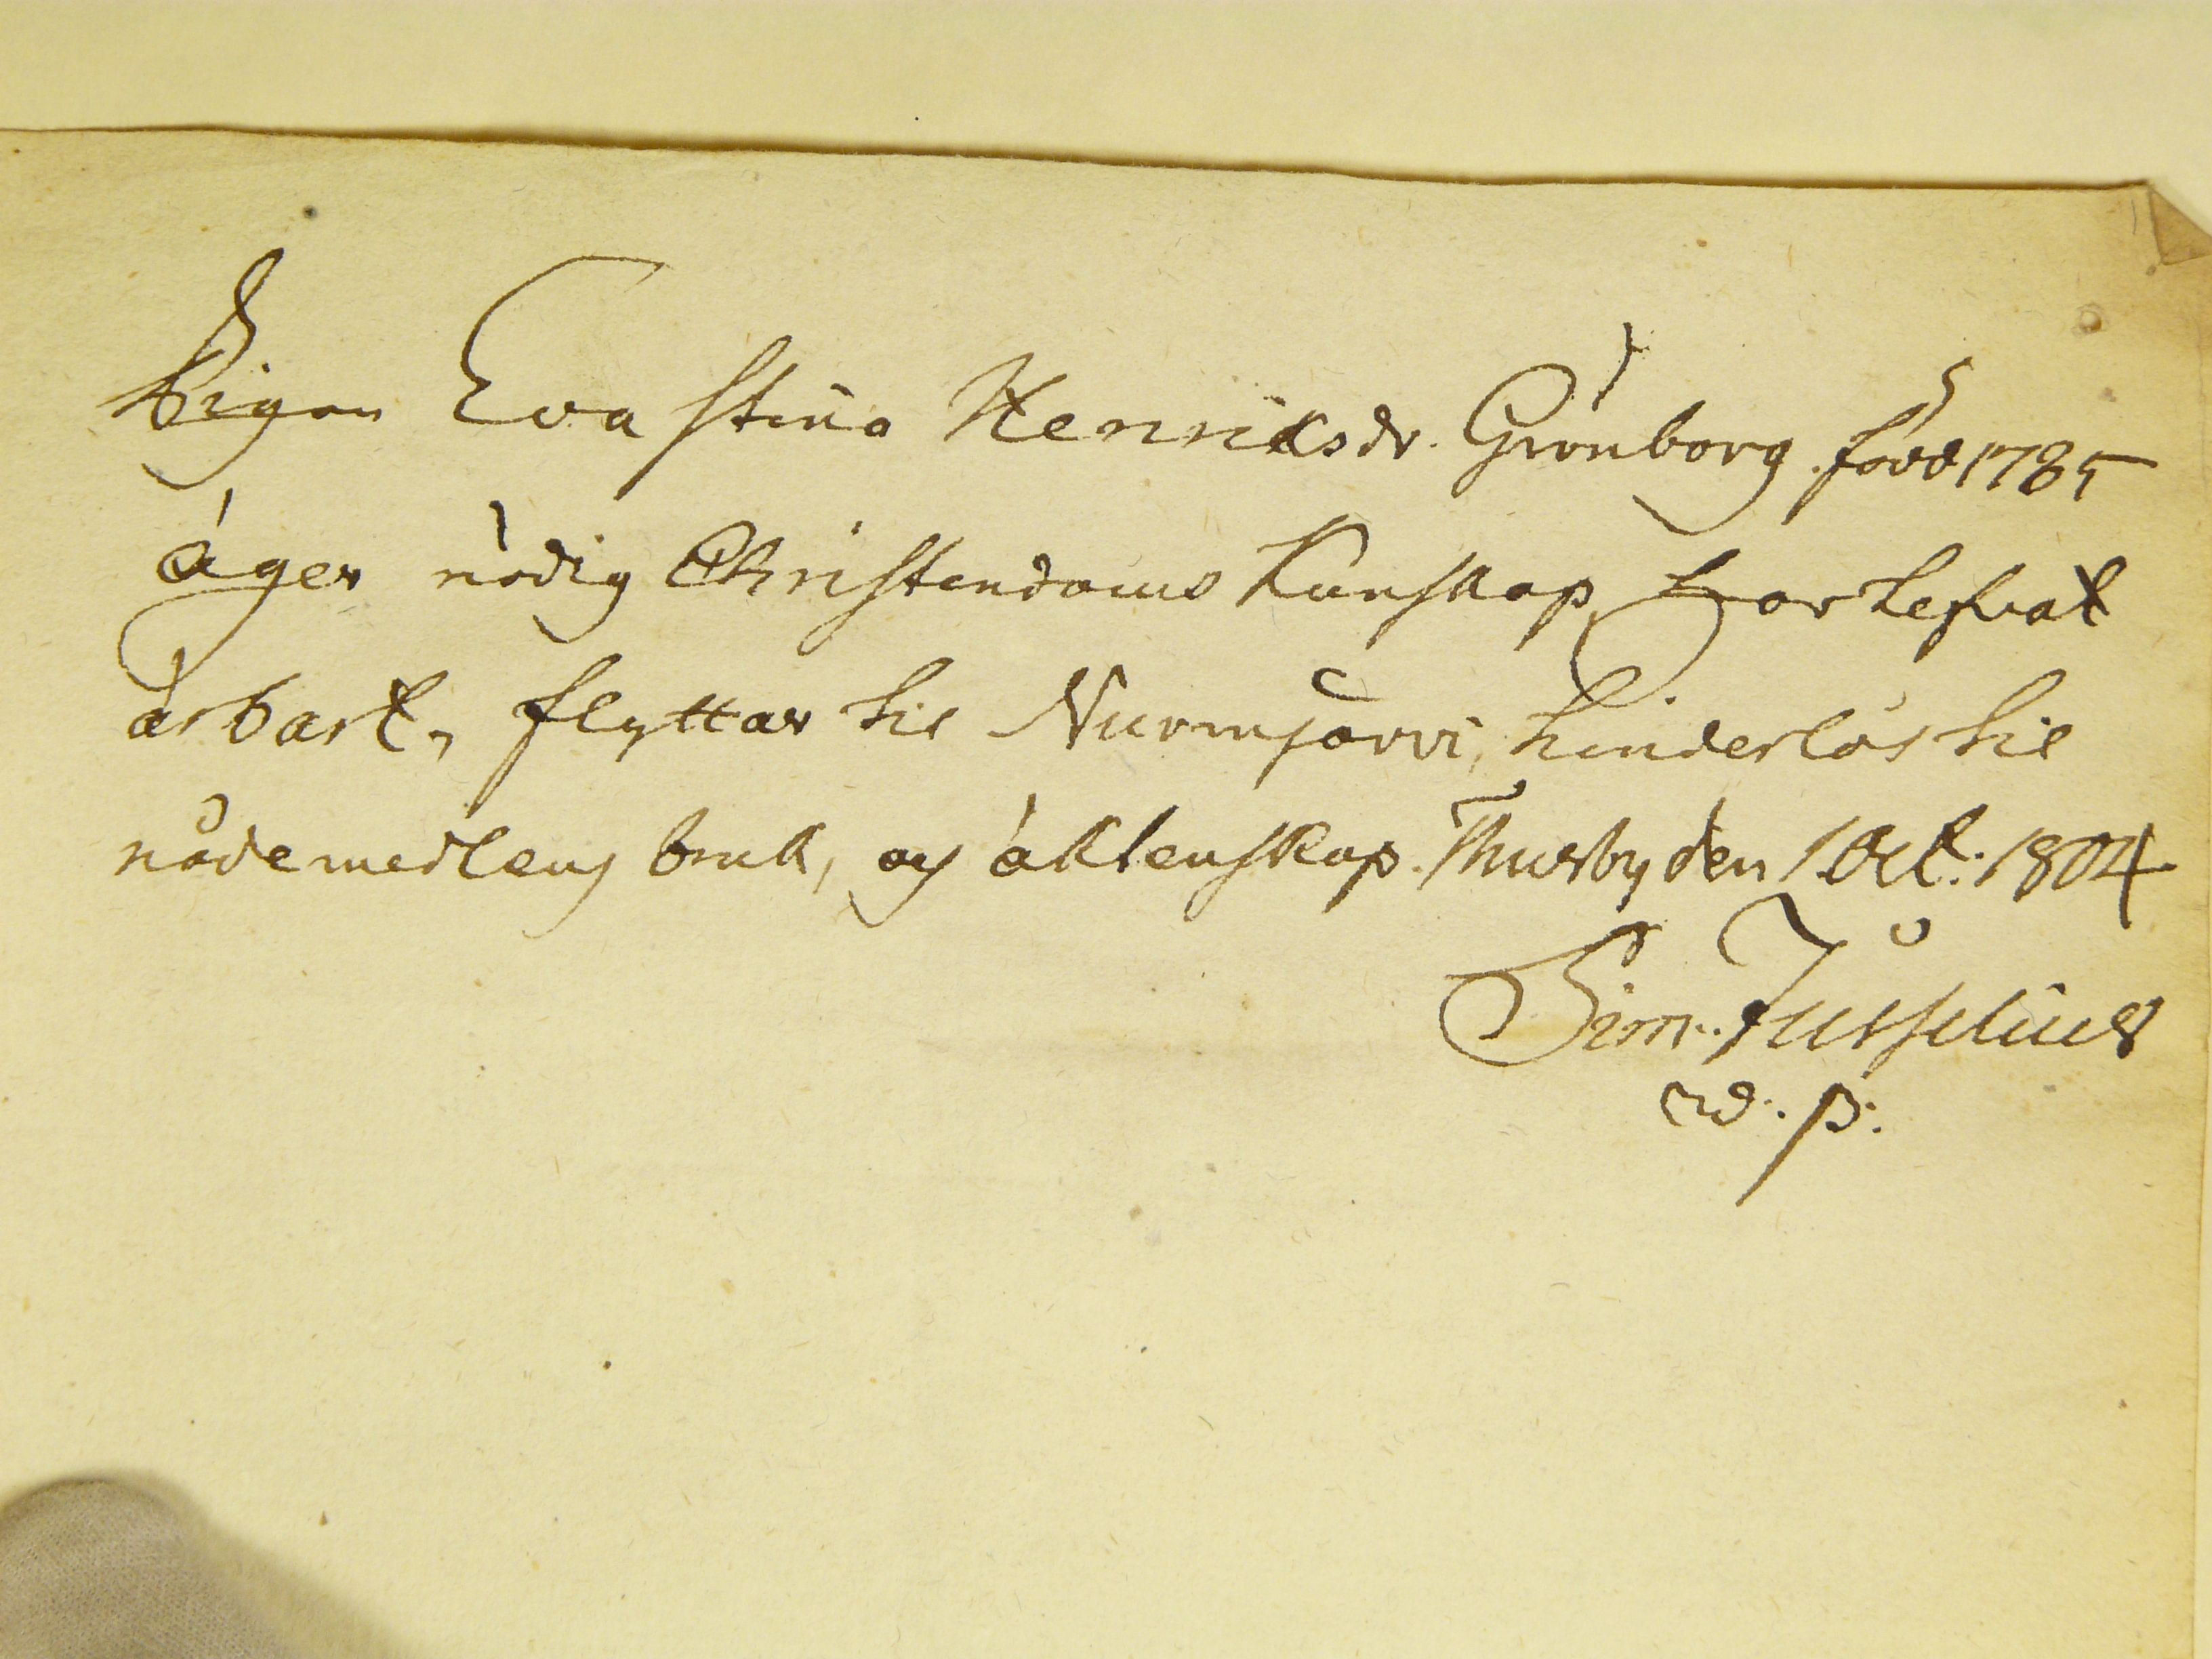 Pigan Eva Stina Henricsdr. Grönborg född 1785
äger nödig Christendoms Kunskap, har lefvat
ärbart, flyttar til Nurmjärvi, hinderlös til
nådemedlens bruk, og äktenskap. Thusby den 1 Oct. 1804
Sim.
v. p.